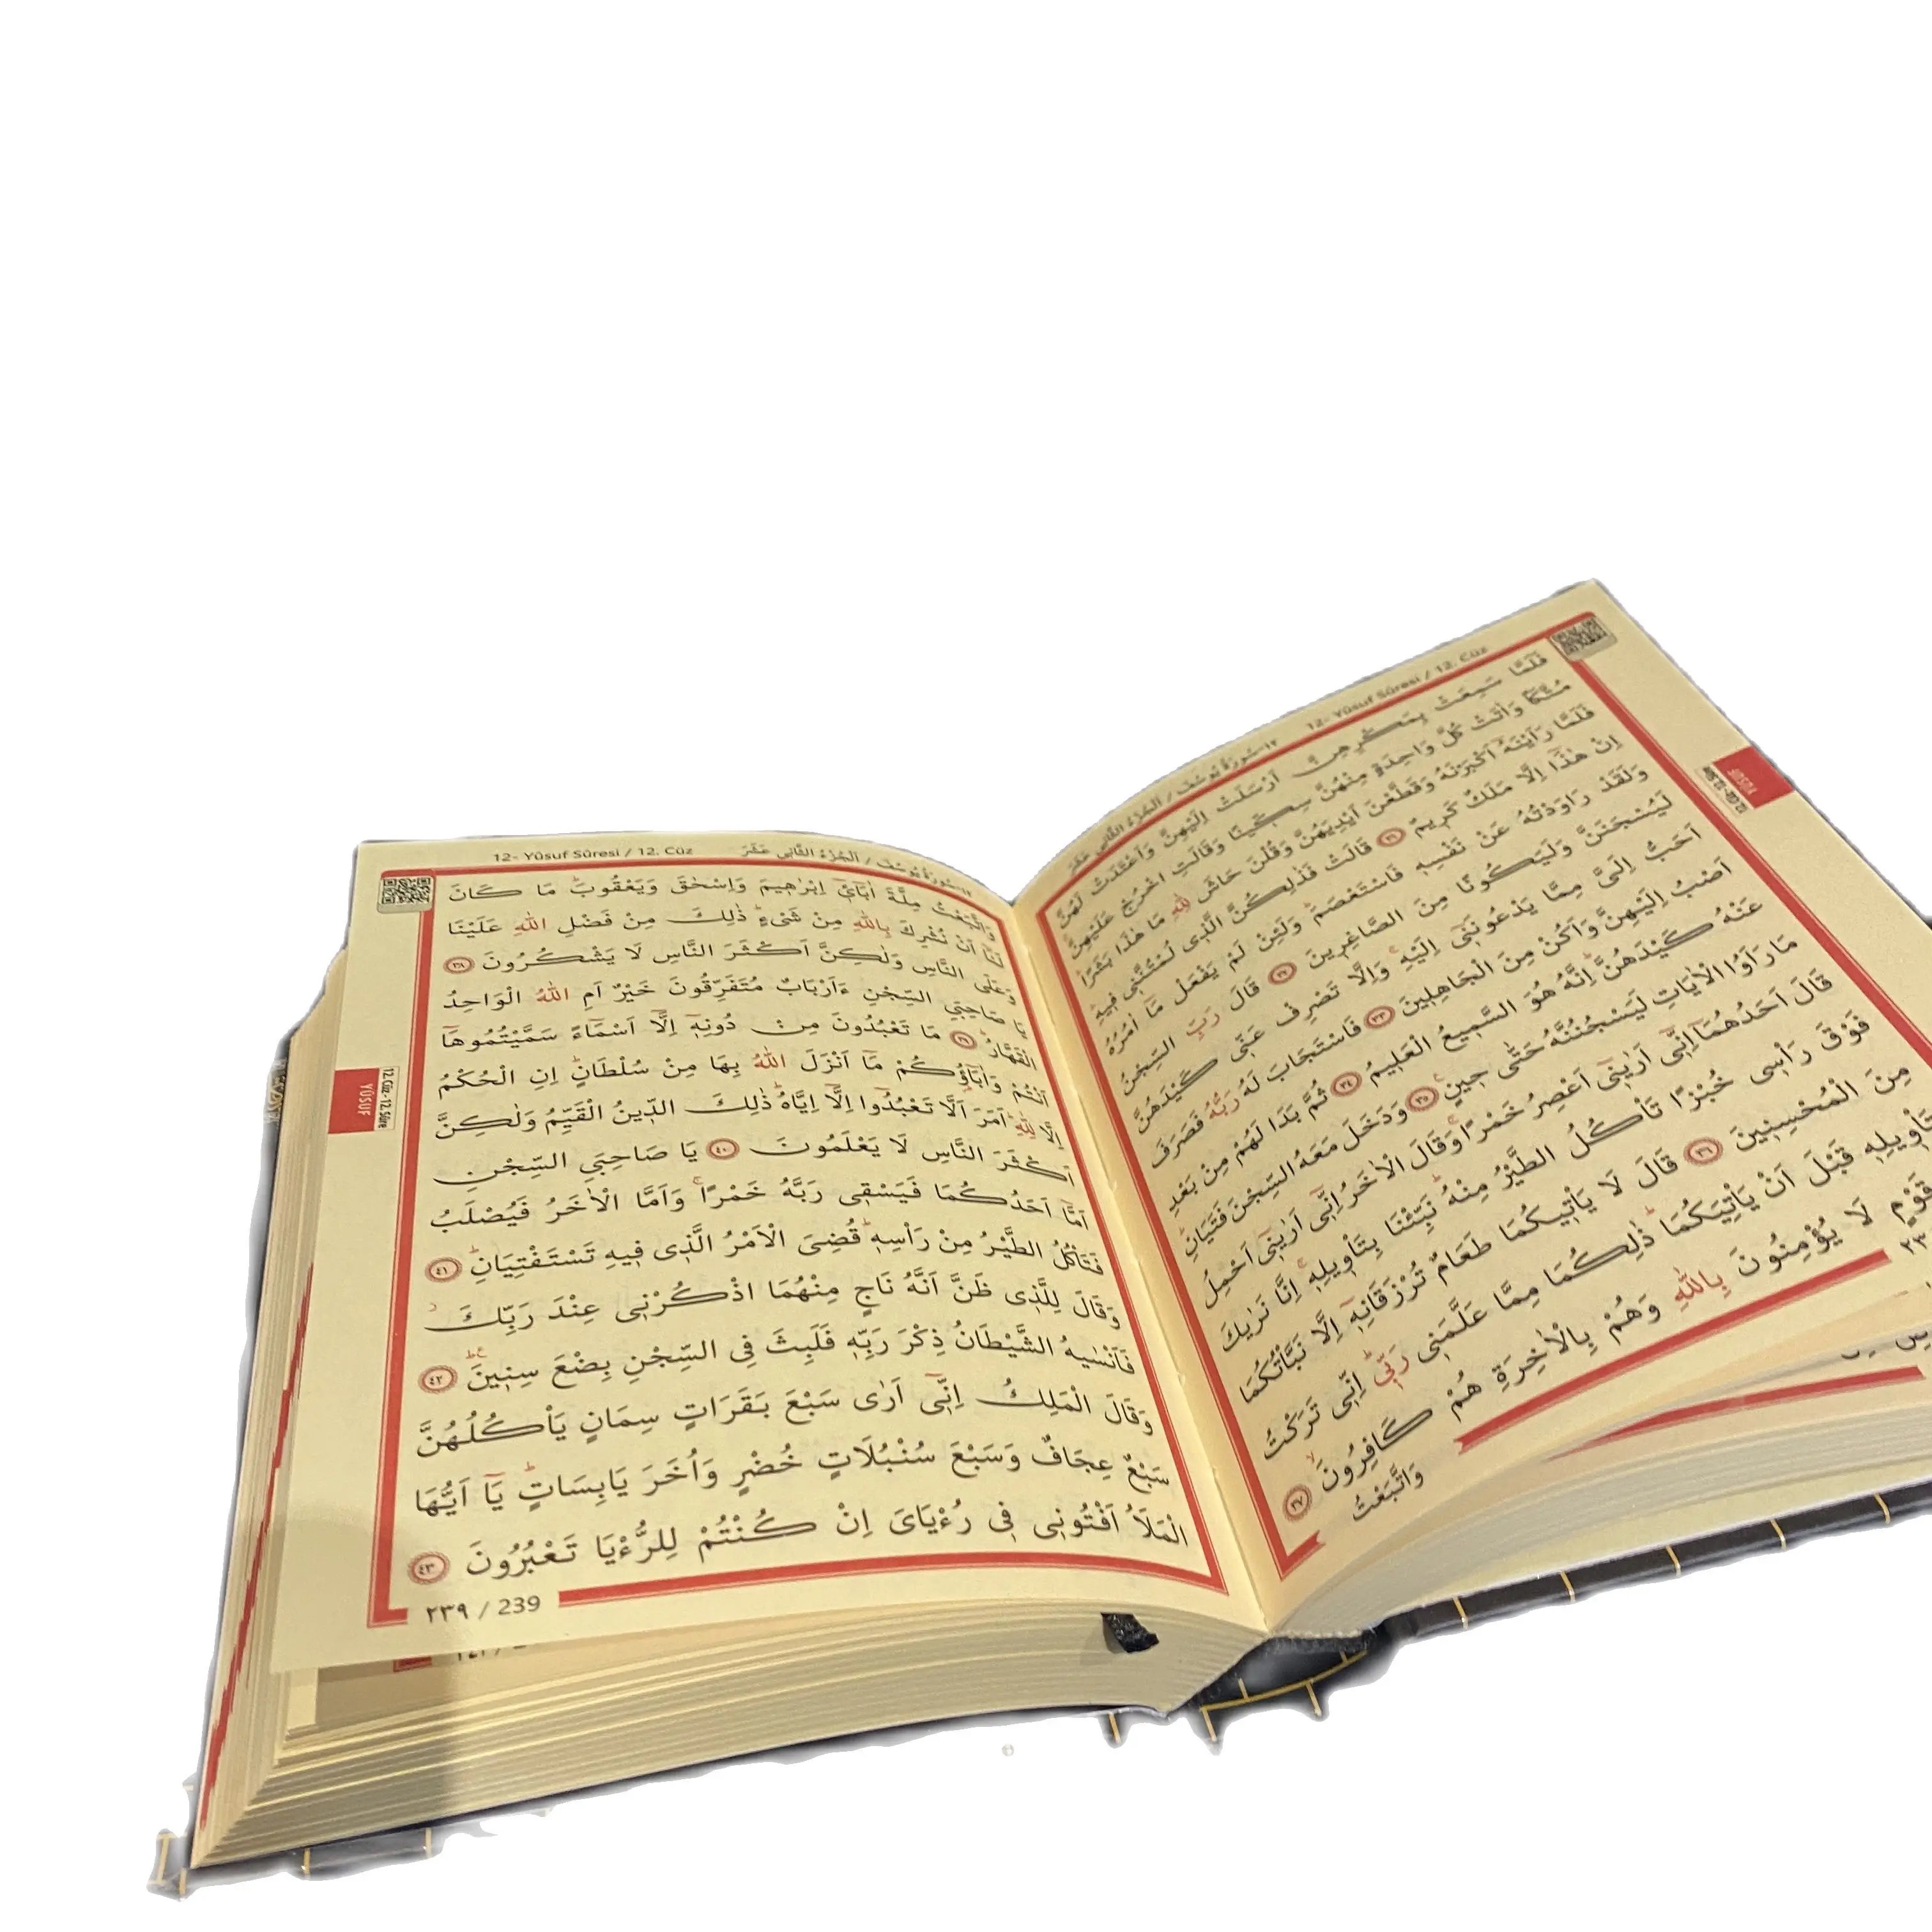 12- Yûsuf Sûresi / 12. Cüz
١٢-سُورَةُ يُوسُفَ / اَلْجُزْءُ الثَّانِي عَشَرَ
فَلَمَّا سَمِعَتْ بِمَكْرِهِنَّ اَرْسَلَتْ اِلَيْهِنَّ وَاَعْتَدَتْ لَهُنَّ
مُتَّكَـًٔا وَاٰتَتْ كُلَّ وَاحِدَةٍ مِنْهُنَّ سِكّٖينًا وَقَالَتِ اخْرُجْ عَلَيْهِنَّۚ
فَلَمَّا رَاَيْنَهُٓ اَكْبَرْنَهُ وَقَطَّعْنَ اَيْدِيَهُنَّ وَقُلْنَ حَاشَ لِلّٰهِ مَا هٰذَا بَشَرًاۜ
اِنْ هٰذَٓا اِلَّا مَلَكٌ كَرٖيمٌ ﴿٣١﴾ قَالَتْ فَذٰلِكُنَّ الَّذٖي لُمْتُنَّنٖي فٖيهِۜ
وَلَقَدْ رَاوَدْتُهُ عَنْ نَفْسِهٖ فَاسْتَعْصَمَۜ وَلَئِنْ لَمْ يَفْعَلْ مَٓا اٰمُرُهُ
لَيُسْجَنَنَّ وَلَيَكُونًا مِنَ الصَّاغِرٖينَ ﴿٣٢﴾ قَالَ رَبِّ السِّجْنُ
اَحَبُّ اِلَيَّ مِمَّا يَدْعُونَنٖٓي اِلَيْهِۚ وَاِلَّا تَصْرِفْ عَنّٖي كَيْدَهُنَّ
اَصْبُ اِلَيْهِنَّ وَاَكُنْ مِنَ الْجَاهِلٖينَ ﴿٣٣﴾ فَاسْتَجَابَ لَهُ رَبُّهُ فَصَرَفَ
عَنْهُ كَيْدَهُنَّۜ اِنَّهُ هُوَ السَّمٖيعُ الْعَلٖيمُ ﴿٣٤﴾ ثُمَّ بَدَا لَهُمْ مِنْ بَعْدِ
مَا رَاَوُا الْاٰيَاتِ لَيَسْجُنُنَّهُ حَتّٰى حٖينٍ۟ ﴿٣٥﴾ وَدَخَلَ مَعَهُ السِّجْنَ فَتَيَانِۜ
قَالَ اَحَدُهُمَٓا اِنّٖٓي اَرٰينٖٓي اَعْصِرُ خَمْرًاۚ وَقَالَ الْاٰخَرُ اِنّٖٓي اَرٰينٖٓي اَحْمِلُ
فَوْقَ رَاْسٖي خُبْزًا تَاْكُلُ الطَّيْرُ مِنْهُۜ نَبِّئْنَا بِتَاْوٖيلِهٖۚ اِنَّا نَرٰيكَ
مِنَ الْمُحْسِنٖينَ ﴿٣٦﴾ قَالَ لَا يَاْتٖيكُمَا طَعَامٌ تُرْزَقَانِهٖٓ اِلَّا نَبَّاْتُكُمَا
بِتَاْوٖيلِهٖ قَبْلَ اَنْ يَاْتِيَكُمَاۜ ذٰلِكُمَا مِمَّا عَلَّمَنٖي رَبّٖيۜ اِنّٖي تَرَكْتُ
قَوْمٍ لَا يُؤْمِنُونَ بِاللّٰهِ وَهُمْ بِالْاٰخِرَةِ هُمْ كَافِرُونَۙ ﴿٣٧﴾
وَاتَّبَعْتُ
YÛSUF
12. Cüz - 12. Sûre
12- Yûsuf Sûresi / 12. Cüz
١٢-سُورَةُ يُوسُفَ / اَلْجُزْءُ الثَّانِي عَشَرَ
وَاتَّبَعْتُ مِلَّةَ اٰبَٓاءٖٓي اِبْرٰهٖيمَ وَاِسْحٰقَ وَيَعْقُوبَۜ مَا كَانَ
لَنَٓا اَنْ نُشْرِكَ بِاللّٰهِ مِنْ شَيْءٍۜ ذٰلِكَ مِنْ فَضْلِ اللّٰهِ عَلَيْنَا
وَعَلَى النَّاسِ وَلٰكِنَّ اَكْثَرَ النَّاسِ لَا يَشْكُرُونَ ﴿٣٨﴾
يَا صَاحِبَيِ السِّجْنِ ءَاَرْبَابٌ مُتَفَرِّقُونَ خَيْرٌ اَمِ اللّٰهُ الْوَاحِدُ
الْقَهَّارُۜ ﴿٣٩﴾ مَا تَعْبُدُونَ مِنْ دُونِهٖٓ اِلَّٓا اَسْمَٓاءً سَمَّيْتُمُوهَٓا
اَنْتُمْ وَاٰبَٓاؤُ۬كُمْ مَٓا اَنْزَلَ اللّٰهُ بِهَا مِنْ سُلْطَانٍۜ اِنِ الْحُكْمُ
اِلَّا لِلّٰهِۜ اَمَرَ اَلَّا تَعْبُدُٓوا اِلَّٓا اِيَّاهُۜ ذٰلِكَ الدّٖينُ الْقَيِّمُ وَلٰكِنَّ
اَكْثَرَ النَّاسِ لَا يَعْلَمُونَ ﴿٤٠﴾ يَا صَاحِبَيِ السِّجْنِ
اَمَّٓا اَحَدُكُمَا فَيَسْقٖي رَبَّهُ خَمْرًاۚ وَاَمَّا الْاٰخَرُ فَيُصْلَبُ
فَتَاْكُلُ الطَّيْرُ مِنْ رَاْسِهٖۜ قُضِيَ الْاَمْرُ الَّذٖي فٖيهِ تَسْتَفْتِيَانِۜ ﴿٤١﴾
وَقَالَ لِلَّذٖي ظَنَّ اَنَّهُ نَاجٍ مِنْهُمَا اذْكُرْنٖي عِنْدَ رَبِّكَۘ
فَاَنْسٰيهُ الشَّيْطَانُ ذِكْرَ رَبِّهٖ فَلَبِثَ فِي السِّجْنِ بِضْعَ سِنٖينَۜ۟ ﴿٤٢﴾
وَقَالَ الْمَلِكُ اِنّٖٓي اَرٰى سَبْعَ بَقَرَاتٍ سِمَانٍ يَاْكُلُهُنَّ
سَبْعٌ عِجَافٌ وَسَبْعَ سُنْبُلَاتٍ خُضْرٍ وَاُخَرَ يَابِسَاتٍۜ يَٓا اَيُّهَا
الْمَلَاُ اَفْتُونٖي فٖي رُءْيَايَ اِنْ كُنْتُمْ لِلرُّءْيَا تَعْبُرُونَ ﴿٤٣﴾
٢٣٩ / 239
YÛSUF
12. Cüz - 12. Sûre